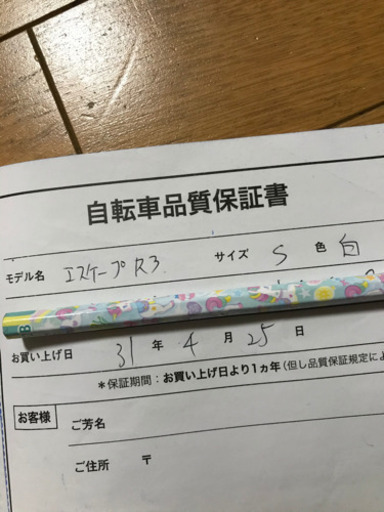 自転車品質保証書
モデル名 エスケープR3 サイズ S 色 白
お買い上げ日 31 年 4 月 25 日
*保証期間：お買い上げ日より1ヵ年（但し品質保証規定によ
お客様 ご芳名
ご住所 〒